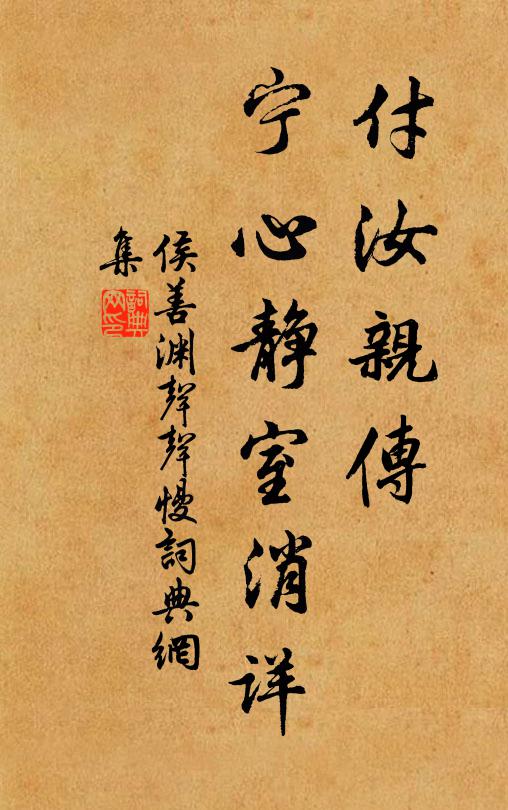 付汝親傳
宁心静室消详
侯善渊聲聲慢詞典網
集
詞典
网印